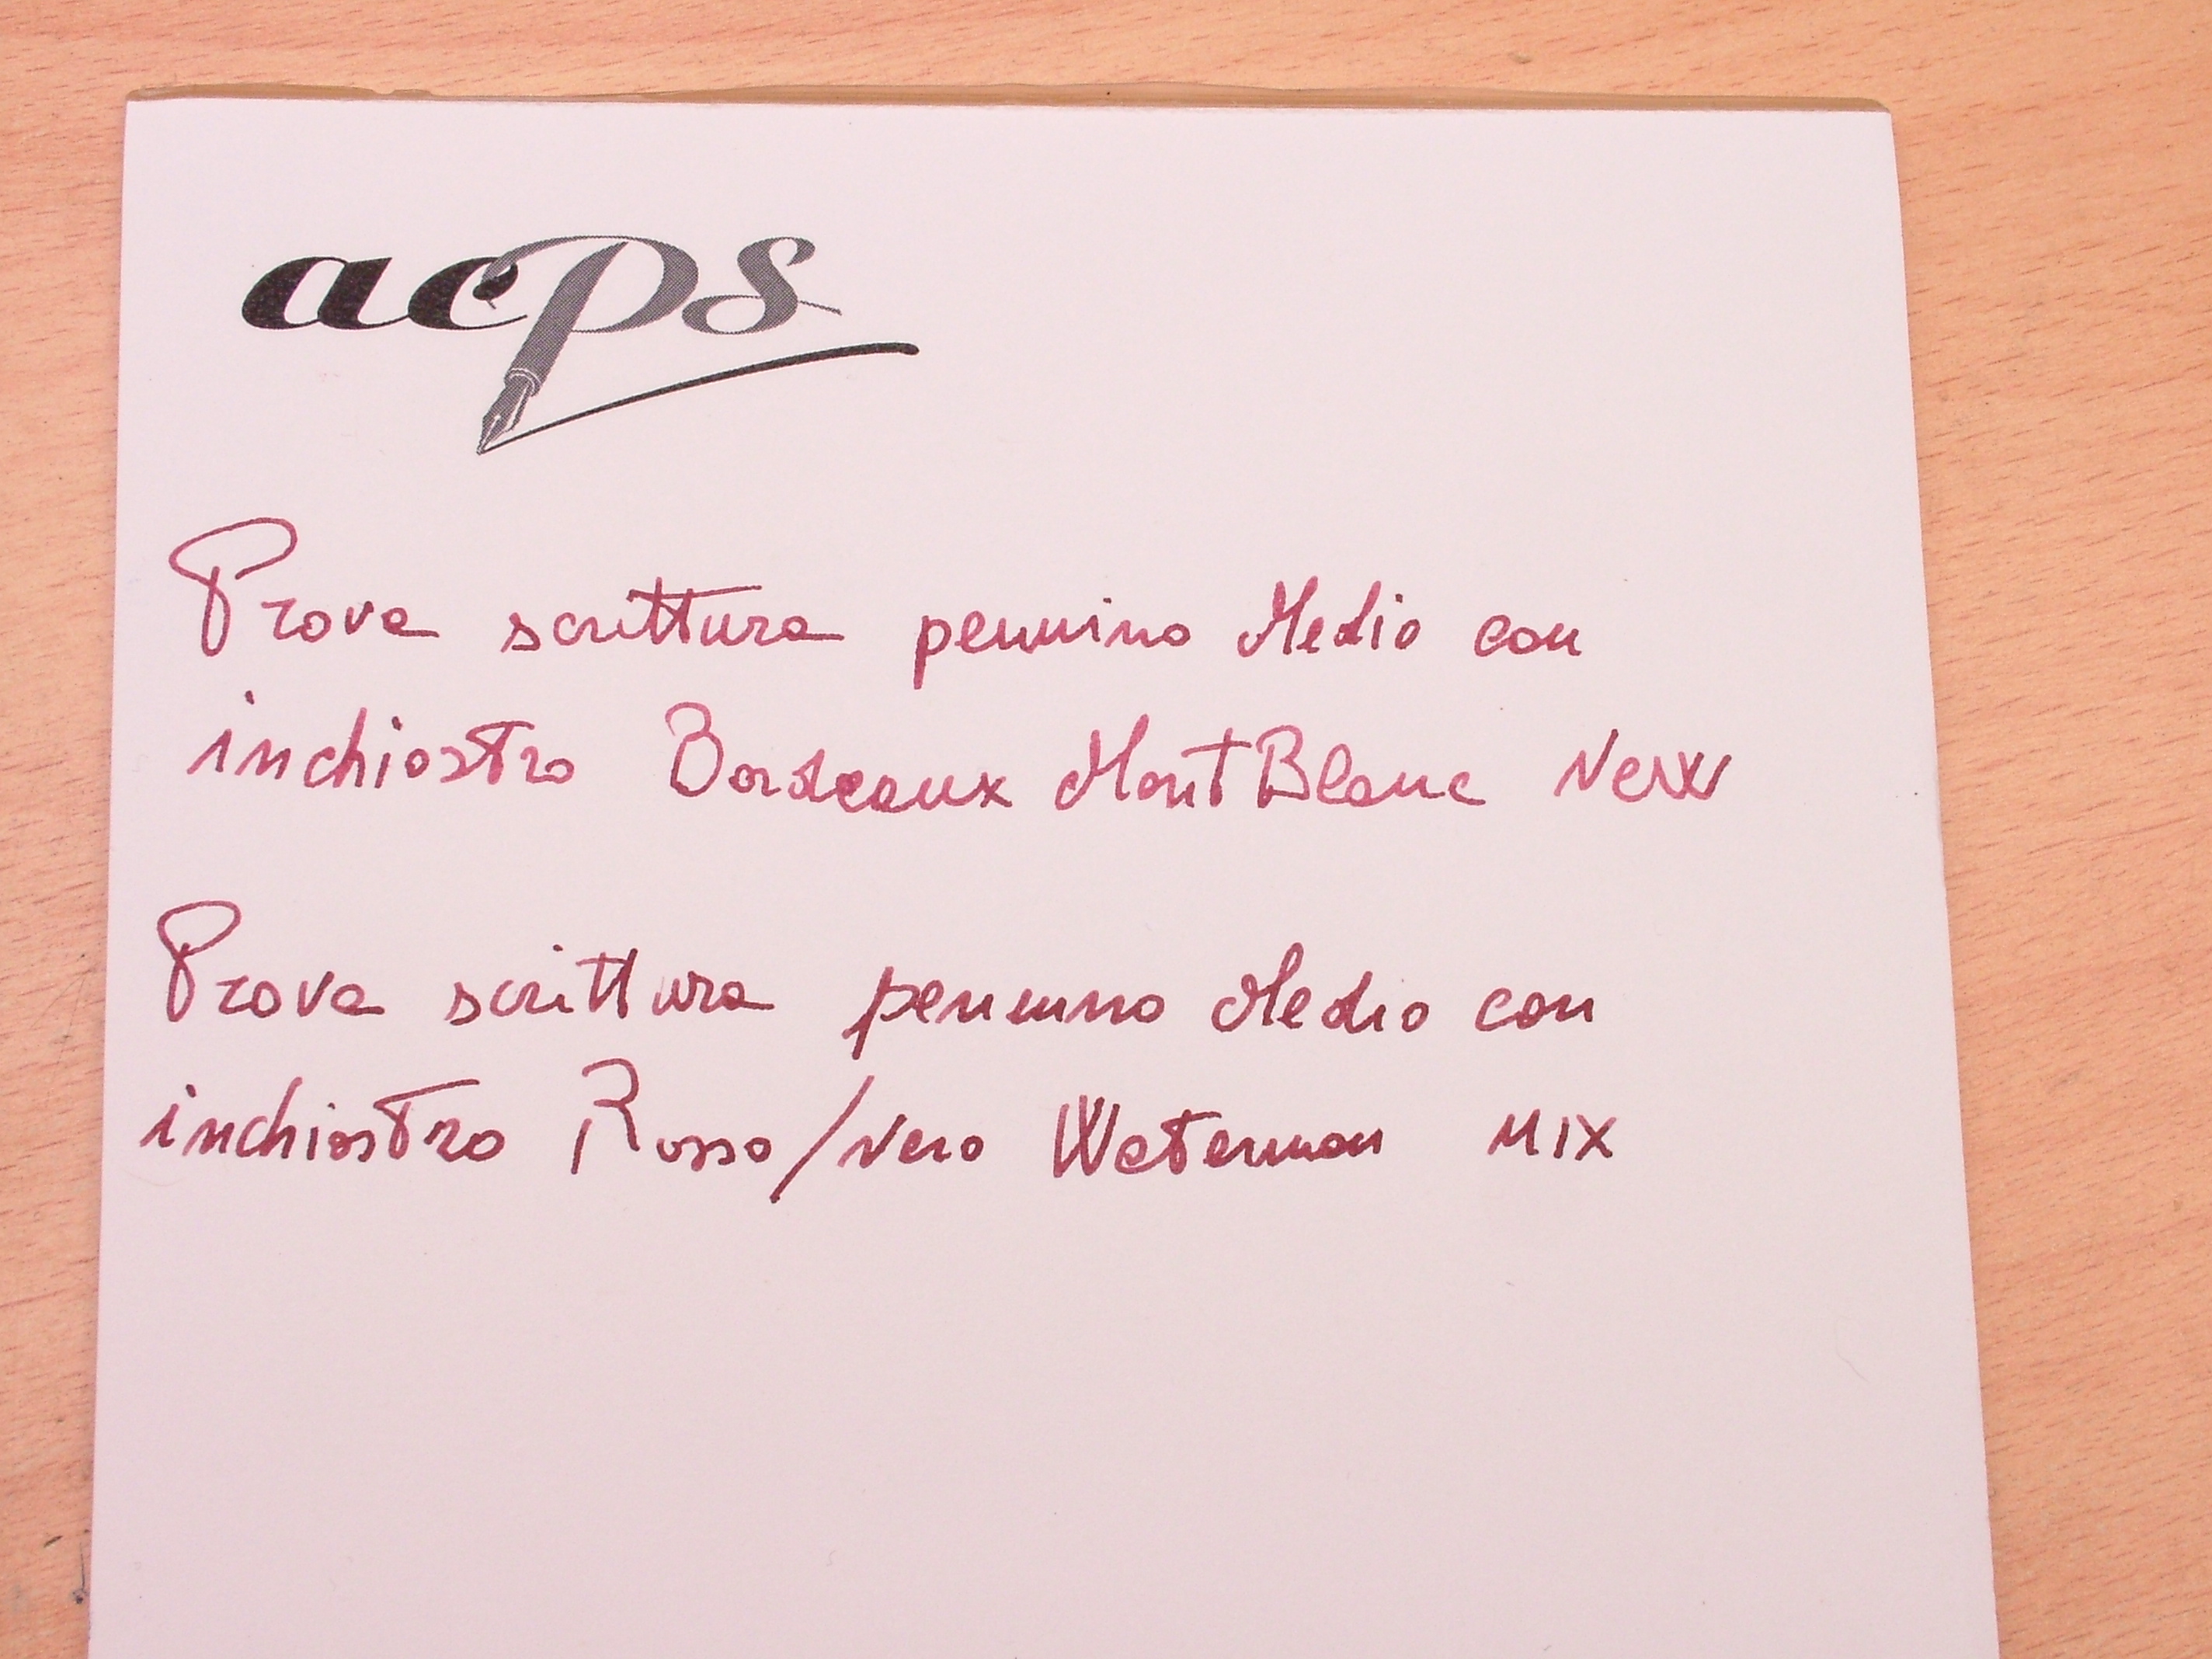 acps
Prova scrittura pennino Medio con
inchiostro Bordeaux MontBlanc New
Prova scrittura pennino Medio con
inchiostro Rosso/Nero Waterman MIX